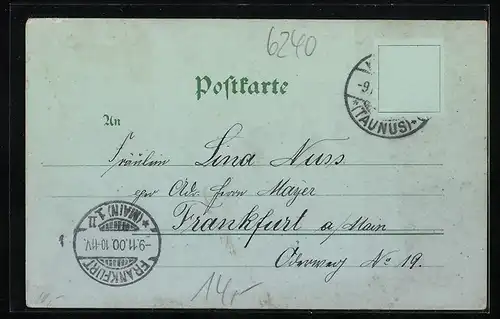 6240
Postkarte
(TAUNUS)
An
Fräulein Lina Nuss
per Ad. Herrn Mayer
Frankfurt a/Main
Oederweg No 19.
FRANKFURT
(MAIN) 1
-9.11.00. 10-11V.
14,-